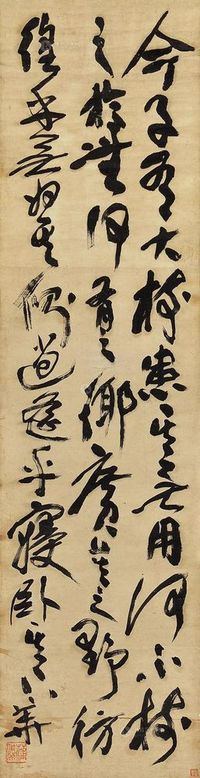 今子有大樹患其无用何不樹
之於無何有之鄉廣莫之野彷
徨乎無為其側逍遙乎寢臥其下